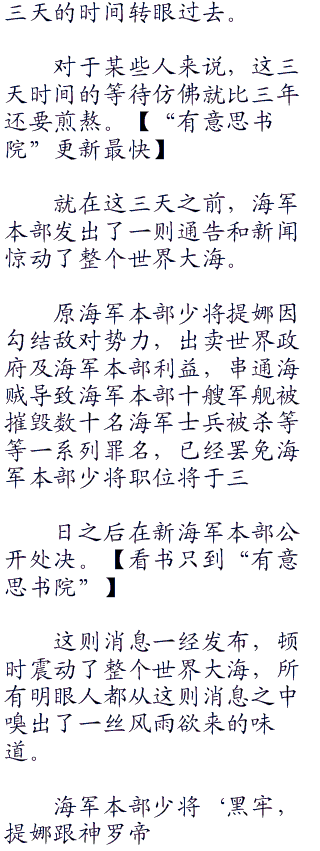 三天的时间转眼过去。
对于某些人来说，这三
天时间的等待仿佛就比三年
还要煎熬。【“有意思书
院”更新最快】
就在这三天之前，海军
本部发出了一则通告和新闻
惊动了整个世界大海。
原海军本部少将提娜因
勾结敌对势力，出卖世界政
府及海军本部利益，串通海
贼导致海军本部十艘军舰被
摧毁数十名海军士兵被杀等
等一系列罪名，已经罢免海
军本部少将职位将于三
日之后在新海军本部公
开处决。【看书只到“有意
思书院”】
这则消息一经发布，顿
时震动了整个世界大海，所
有明眼人都从这则消息之中
嗅出了一丝风雨欲来的味
道。
海军本部少将‘黑牢，
提娜跟神罗帝